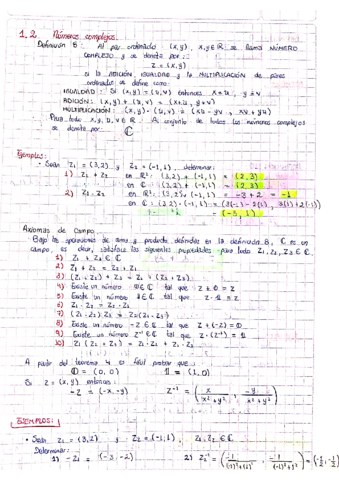 1.2 Números complejos.
Definición 8: Al par ordenado (x,y), x,y ∈ ℝ se llama NÚMERO
COMPLEJO y se denota por:
z = (x,y)
si la ADICIÓN, IGUALDAD y la MULTIPLICACIÓN de pares
ordenados se define como:
IGUALDAD: Si (x,y) = (u,v) entonces x=u, y=v
ADICIÓN: (x,y) + (u,v) = (x+u, y+v)
MULTIPLICACIÓN: (x,y) · (u,v) = (xu - yv, xv + yu)
Para todo x, y, u, v ∈ ℝ. Al conjunto de todos los números complejos
se denota por: ℂ
Ejemplos:
• Sean z₁ = (3,2) y z₂ = (-1,1), determinar:
1) z₁ + z₂ en ℝ²: (3,2) + (-1,1) = (2,3)
en ℂ: (3,2) + (-1,1) = (2,3)
2) z₁ · z₂ en ℝ²: (3,2) · (-1,1) = -3 + 2 = -1
en ℂ: (3,2) · (-1,1) = (3(-1) - 2(1), 3(1) + 2(-1))
= (-5,1)
Axiomas de Campo
Bajo las operaciones de suma y producto definidas en la definición 8, ℂ es un
campo, es decir, satisface las siguientes propiedades para todo z₁, z₂, z₃ ∈ ℂ
1) z₁ + z₂ ∈ ℂ
2) z₁ + z₂ = z₂ + z₁
3) (z₁ + z₂) + z₃ = z₁ + (z₂ + z₃)
4) Existe un número 𝟘 ∈ ℂ tal que z + 𝟘 = z
5) Existe un número 𝟙 ∈ ℂ tal que z · 𝟙 = z
6) z₁ · z₂ = z₂ · z₁
7) (z₁ · z₂) · z₃ = z₁ (z₂ · z₃)
8) Existe un número -z ∈ ℂ tal que z + (-z) = 𝟘
9) Existe un número z⁻¹ ∈ ℂ tal que z · (z⁻¹) = 𝟙
10) z₁ (z₂ + z₃) = z₁ · z₂ + z₁ · z₃
A partir del teorema 4 es fácil probar que:
𝟘 = (0,0) 𝟙 = (1,0)
Si z = (x,y) entonces:
-z = (-x,-y) z⁻¹ = (x/(x²+y²), -y/(x²+y²))
EJEMPLOS:
• Sean z₁ = (3,2) y z₂ = (-1,1), z₁, z₂ ∈ ℂ
Determinar:
1) -z₁ = (-3,-2) 2) z₂⁻¹ = (-1/((-1)²+(1)²), -1/((-1)²+1²)) = (-1/2, -1/2)